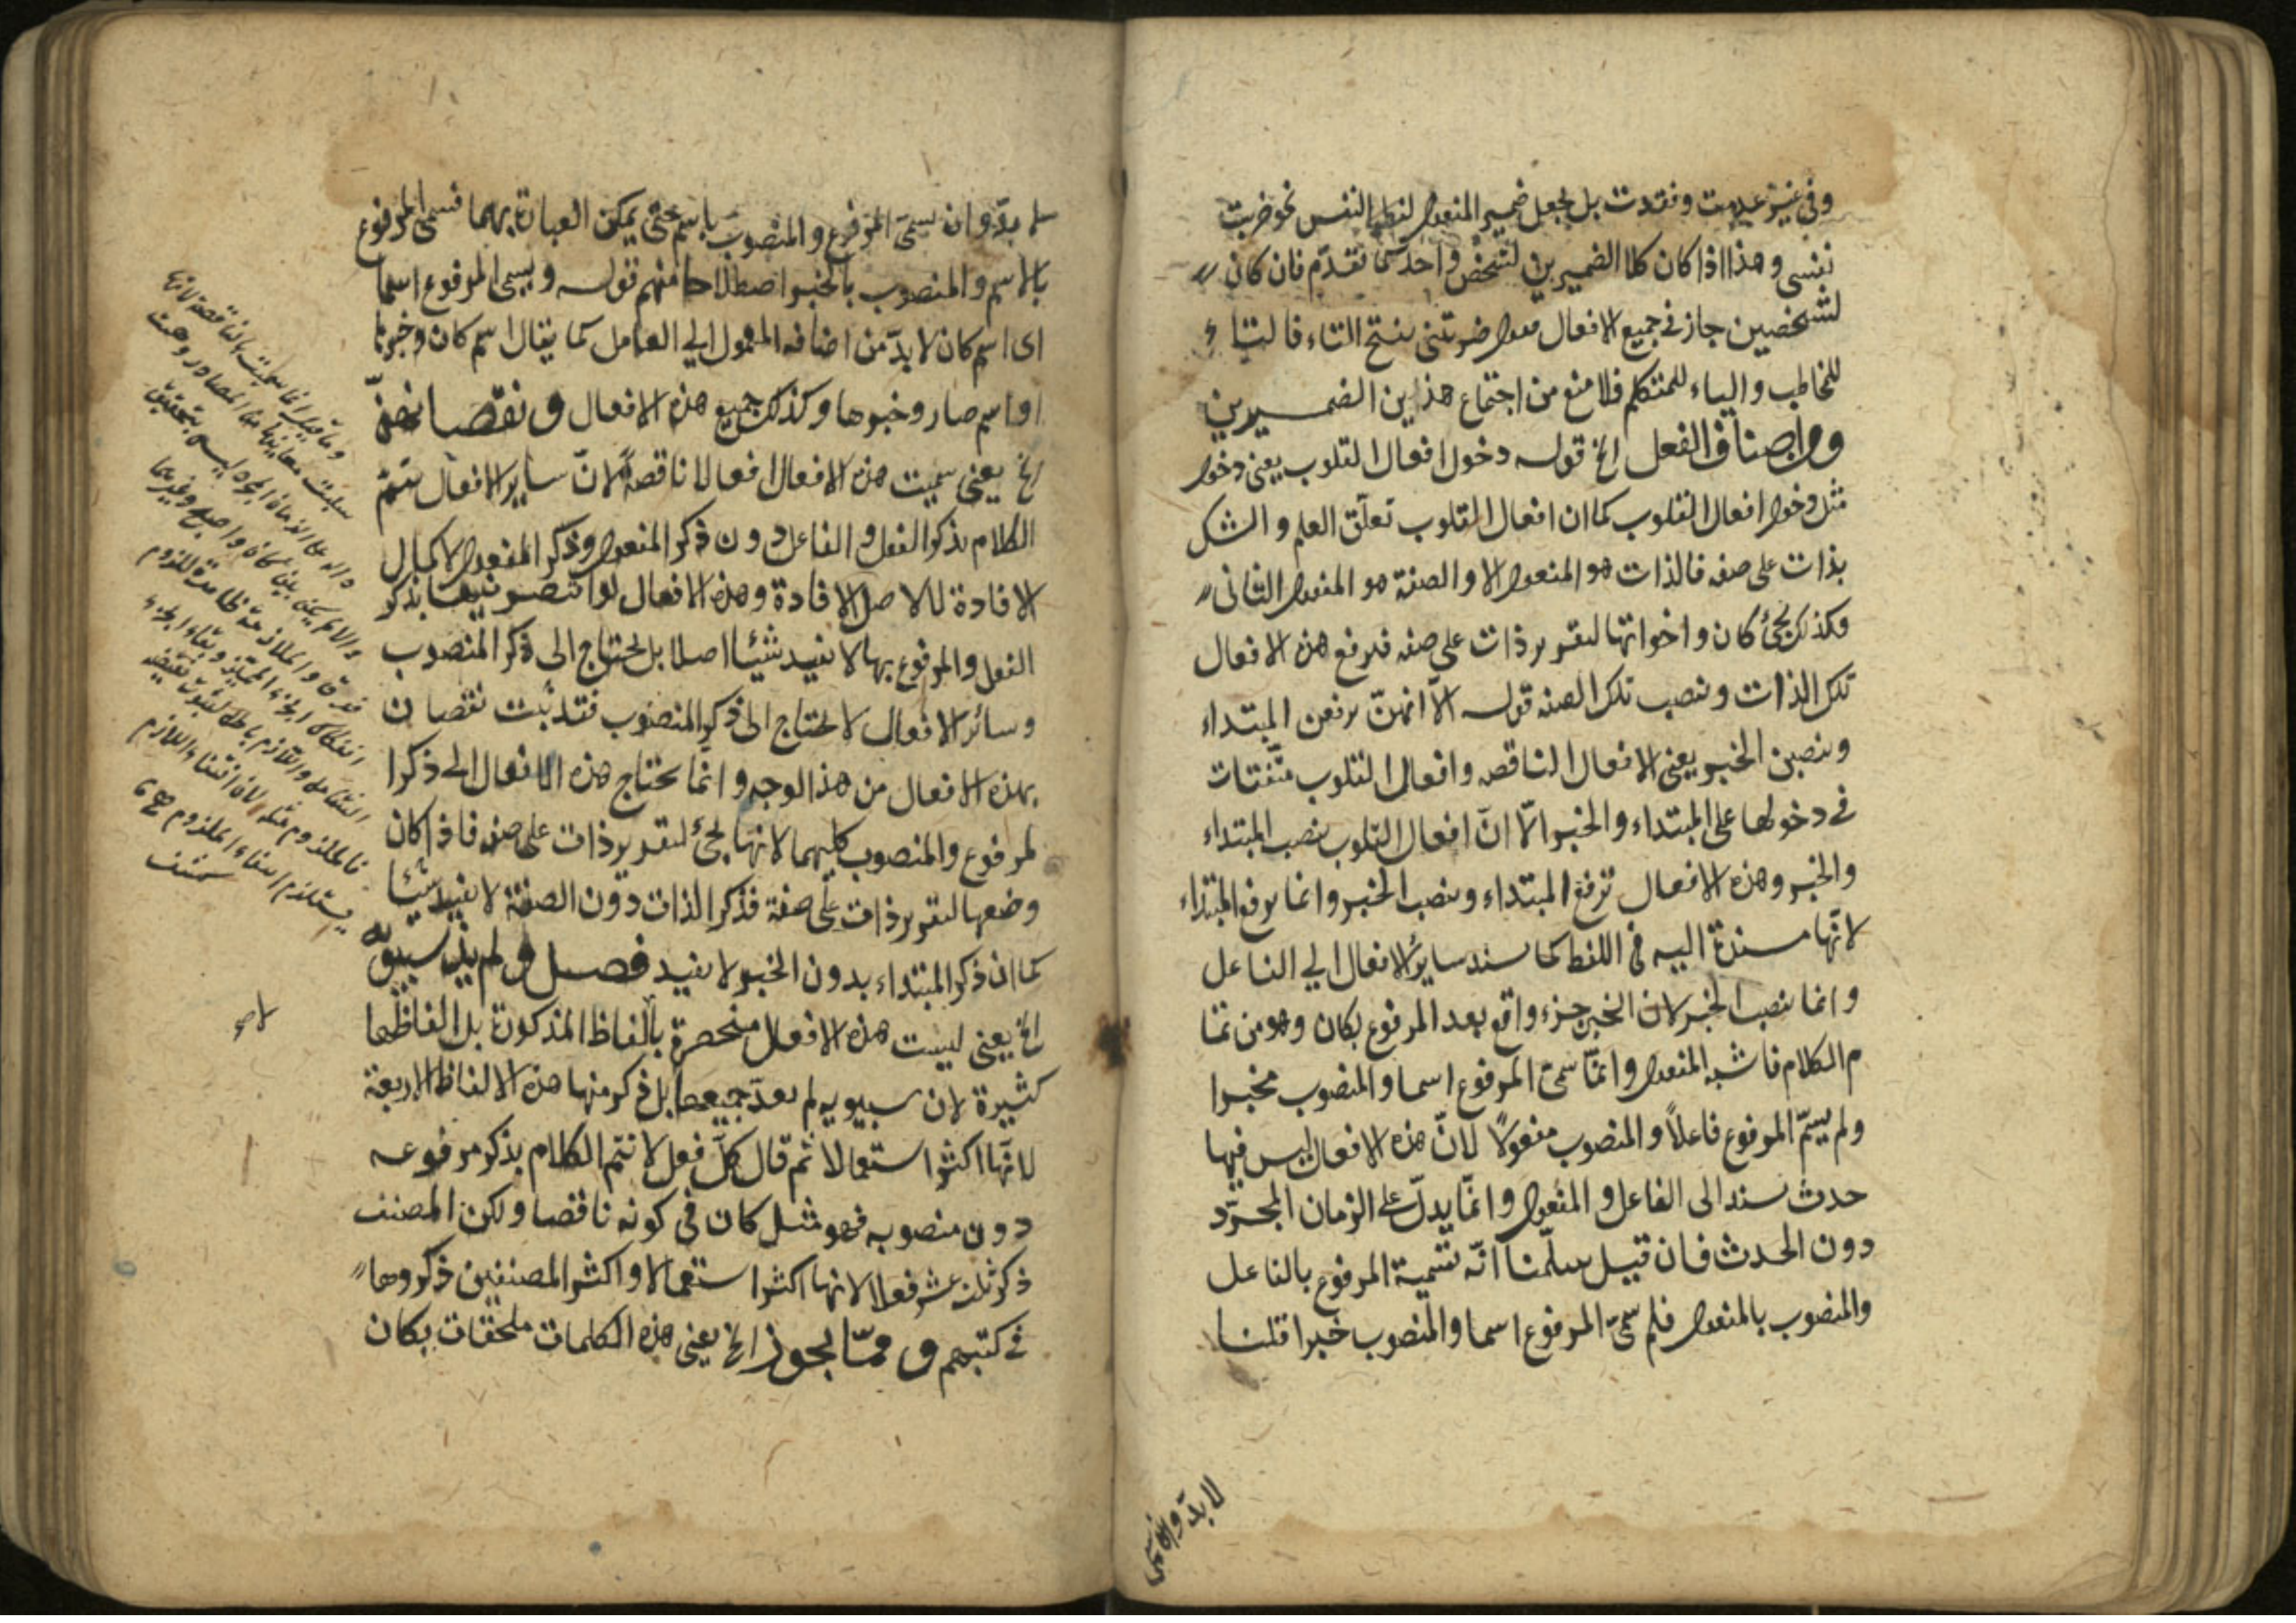 وفي غير عدمت وفقدت بل يجعل ضمير المفعول لفظ النفس نحو ضربت
نفسي وهذا اذا كان كلا الضميرين لشخص واحد كما تقدم فان كان
لشخصين جاز في جميع الافعال نحو ضربتني بفتح التاء فالتاء
للمخاطب والياء للمتكلم فلا منع من اجتماع هذين الضميرين
ومن اصناف الفعل الخ قوله دخول افعال القلوب يعني دخول
مثل دخول افعال القلوب كما ان افعال القلوب تعلق العلم والشك
بذات على صفه فالذات هو المفعول الاول والصفة هو المفعول الثاني
وكذلك يجئ كان واخواتها لتقرير ذات على صفه فيرفع هذه الافعال
تلك الذات وينصب تلك الصفه قوله الا انهن يرفعن المبتداء
وينصبن الخبر يعني الافعال الناقصه وافعال القلوب متفقتان
في دخولها على المبتداء والخبر الا ان افعال القلوب ينصب المبتداء
والخبر وهذه الافعال ترفع المبتداء وينصب الخبر وانما يرفع المبتداء
لانها مسندة اليه في اللفظ كما يسند سائر الافعال الي الفاعل
وانما ينصب الخبر لان الخبر جزء واقع بعد المرفوع بكان وهو من تما
م الكلام فاشبه المفعول وانما سمى المرفوع اسما والمنصوب خبرا
ولم يسم المرفوع فاعلاً والمنصوب مفعولاً لان هذه الافعال ليس فيها
حدث يسند الى الفاعل والمفعول وانما يدل على الزمان المجرد
دون الحدث فان قيل سلمنا انه تسمية المرفوع بالفاعل
والمنصوب بالمفعول فلم سمى المرفوع اسما والمنصوب خبرا قلنا
لا بد وان يسمى
لا بد وان يسمى المرفوع والمنصوب باسم حتى يمكن العبارة بهما فسمى المرفوع
بالاسم والمنصوب بالخبر اصطلاحا منهم قوله ويسمى المرفوع اسما
اى اسم كان لا بد من اضافه المعمول الي العامل كما يقال اسم كان وخبرها
او اسم صار وخبرها وكذلك جميع هذه الافعال ونقصانهن
الخ يعني سميت هذه الافعال افعالا ناقصة لان ساير الافعال يتم
الكلام بذكر الفعل والفاعل دون ذكر المفعول وذكر المفعول لاكمال
الافادة لا لاصل الافادة وهذه الافعال لو اقتصر فيها بذكر
الفعل والمرفوع بها لا يفيد شيئا اصلا بل يحتاج الى ذكر المنصوب
وسائر الافعال لا يحتاج الى ذكر المنصوب فقد ثبت نقصان
بهذه الافعال من هذا الوجه وانما يحتاج هذه الافعال الى ذكر ا
لمرفوع والمنصوب كليهما لانها يجئ لتقرير ذات على صفه فاذا كان
وضعها لتقرير ذات على صفة فذكر الذات دون الصفة لا يفيد شيئا
كما ان ذكر المبتداء بدون الخبر لا يفيد فصل ولم يذكر سيبويه
الخ يعني ليست هذه الافعال منحصرة بالفاظ المذكورة بل الفاظها
كثيرة لان سيبويه لم يعد جميعها بل ذكر منها هذه الالفاظ الاربعة
لانها اكثر استعمالا ثم قال كل فعل لا يتم الكلام بذكر مرفوعه
دون منصوبه فهو مثل كان في كونه ناقصا ولكن المصنف
ذكر ثلث عشر فعلا لانها اكثر استعمالا واكثر المصنفين ذكروها
في كتبهم ومما يجوز الخ يعني هذه الكلمات ملحقات بكان